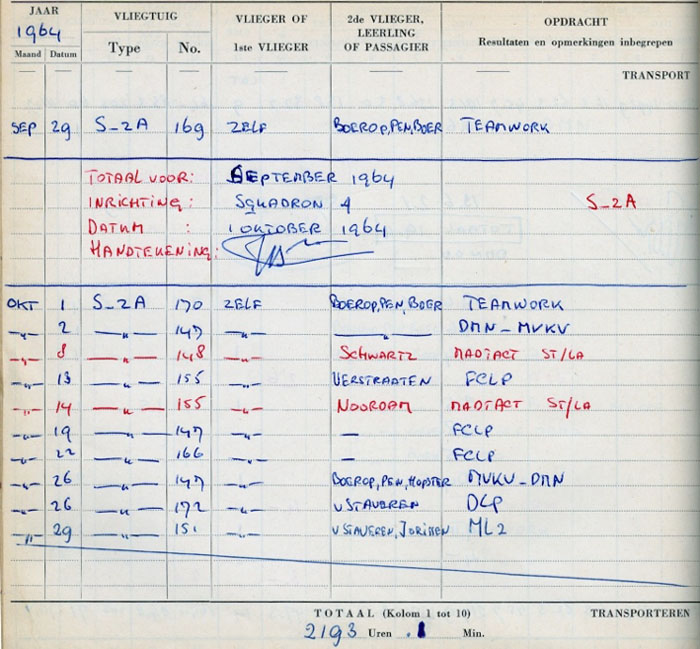 JAAR VLIEGTUIG VLIEGER OF 1ste VLIEGER 2de VLIEGER, LEERLING OF PASSAGIER OPDRACHT Resultaten en opmerkingen inbegrepen
1964
Maand Datum Type No.
TRANSPORT
SEP 29 S-2A 169 ZELF BOEROP, PEN, BOER TEAMWORK
TOTAAL VOOR: SEPTEMBER 1964
INRICHTING: SQUADRON 4 S-2A
DATUM : 1 OKTOBER 1964
HANDTEKENING:
OKT 1 S-2A 170 ZELF BOEROP, PEN, BOER TEAMWORK
-"- 2 -"- 147 -"- -"- DMN-MVKV
-"- 8 -"- 148 -"- SCHWARTZ MADTACT ST/LA
-"- 13 -"- 155 -"- VERSTRAATEN FCLP
-"- 14 -"- 155 -"- NOORDAM MADTACT ST/LA
-"- 19 -"- 147 -"- - FCLP
-"- 22 -"- 166 -"- - FCLP
-"- 26 -"- 147 -"- BOEROP, PEN, HOPSTER MVKV-DMN
-"- 26 -"- 172 -"- v STAVEREN DLP
-"- 29 -"- 151 -"- v STAVEREN, JORISSEN ML2
TOTAAL (Kolom 1 tot 10) TRANSPORTEREN
2193 Uren . Min.